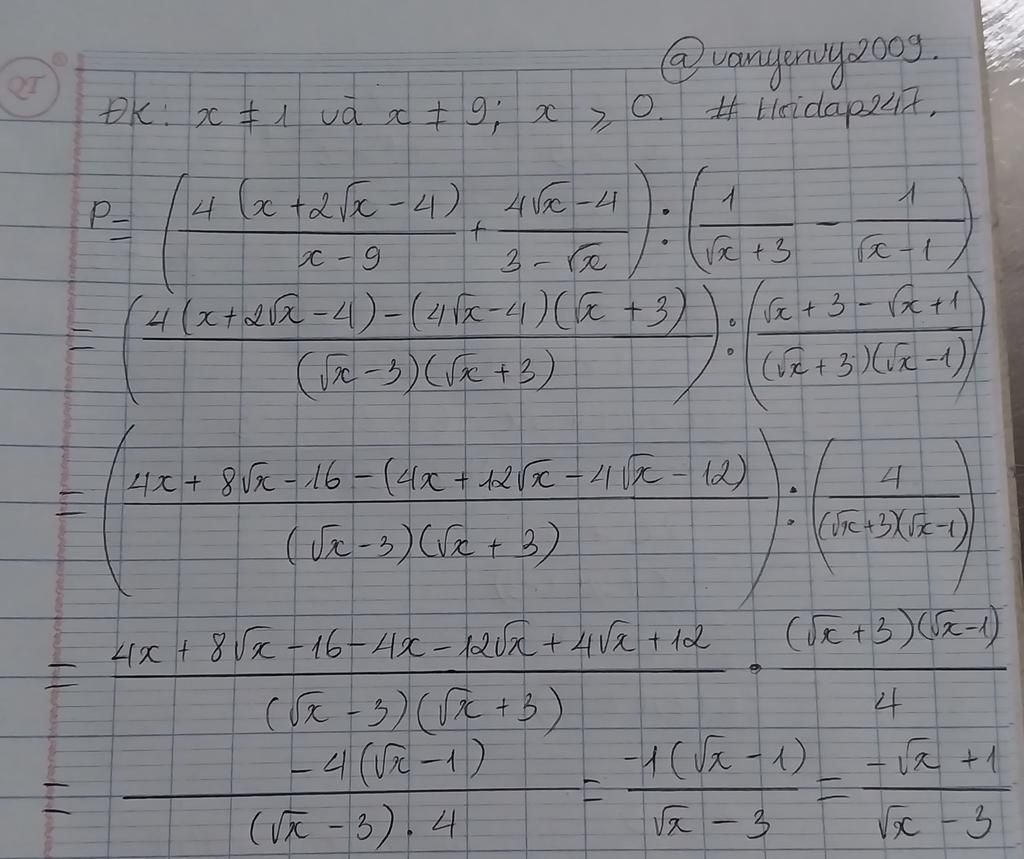 QT
@vanyenvy2009.
ĐK: x ≠ 1 và x ≠ 9; x ⩾ 0. # Hoidap247.
P = ( 4(x+2√x-4) / (x-9) + (4√x-4) / (3-√x) ) : ( 1 / (√x+3) - 1 / (√x-1) )
= ( (4(x+2√x-4)-(4√x-4)(√x+3)) / ((√x-3)(√x+3)) ) : ( (√x+3-√x+1) / ((√x+3)(√x-1)) )
= ( (4x+8√x-16-(4x+12√x-4√x-12)) / ((√x-3)(√x+3)) ) : ( 4 / ((√x+3)(√x-1)) )
= (4x+8√x-16-4x-12√x+4√x+12) / ((√x-3)(√x+3)) . ((√x+3)(√x-1)) / 4
= -4(√x-1) / ((√x-3).4) = -1(√x-1) / (√x-3) = (-√x+1) / (√x-3)